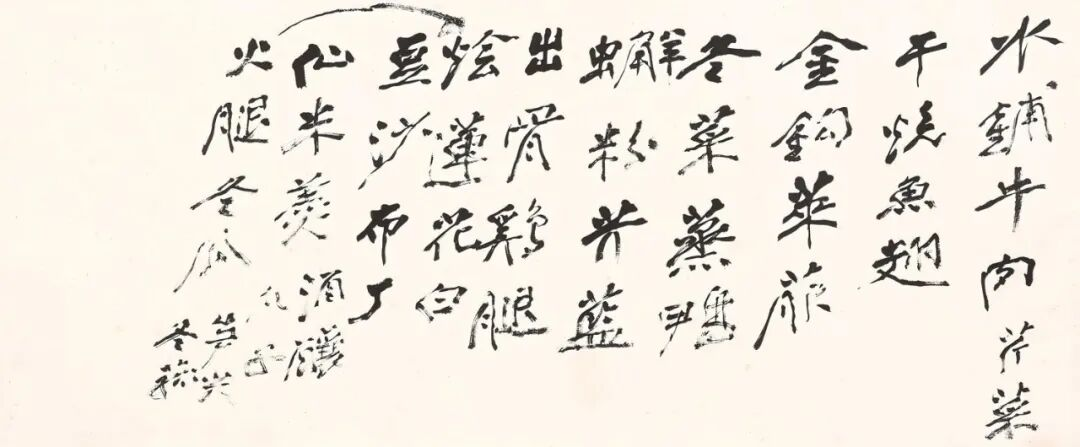 水鋪牛肉芹菜
干燒魚翅
金鈎萊菔
冬菜蒸鴨
蠏粉芥藍
出骨鷄腿
燴蓮花白
豆沙布丁
仙米羹酒釀
丸子
火腿冬瓜
笋尖